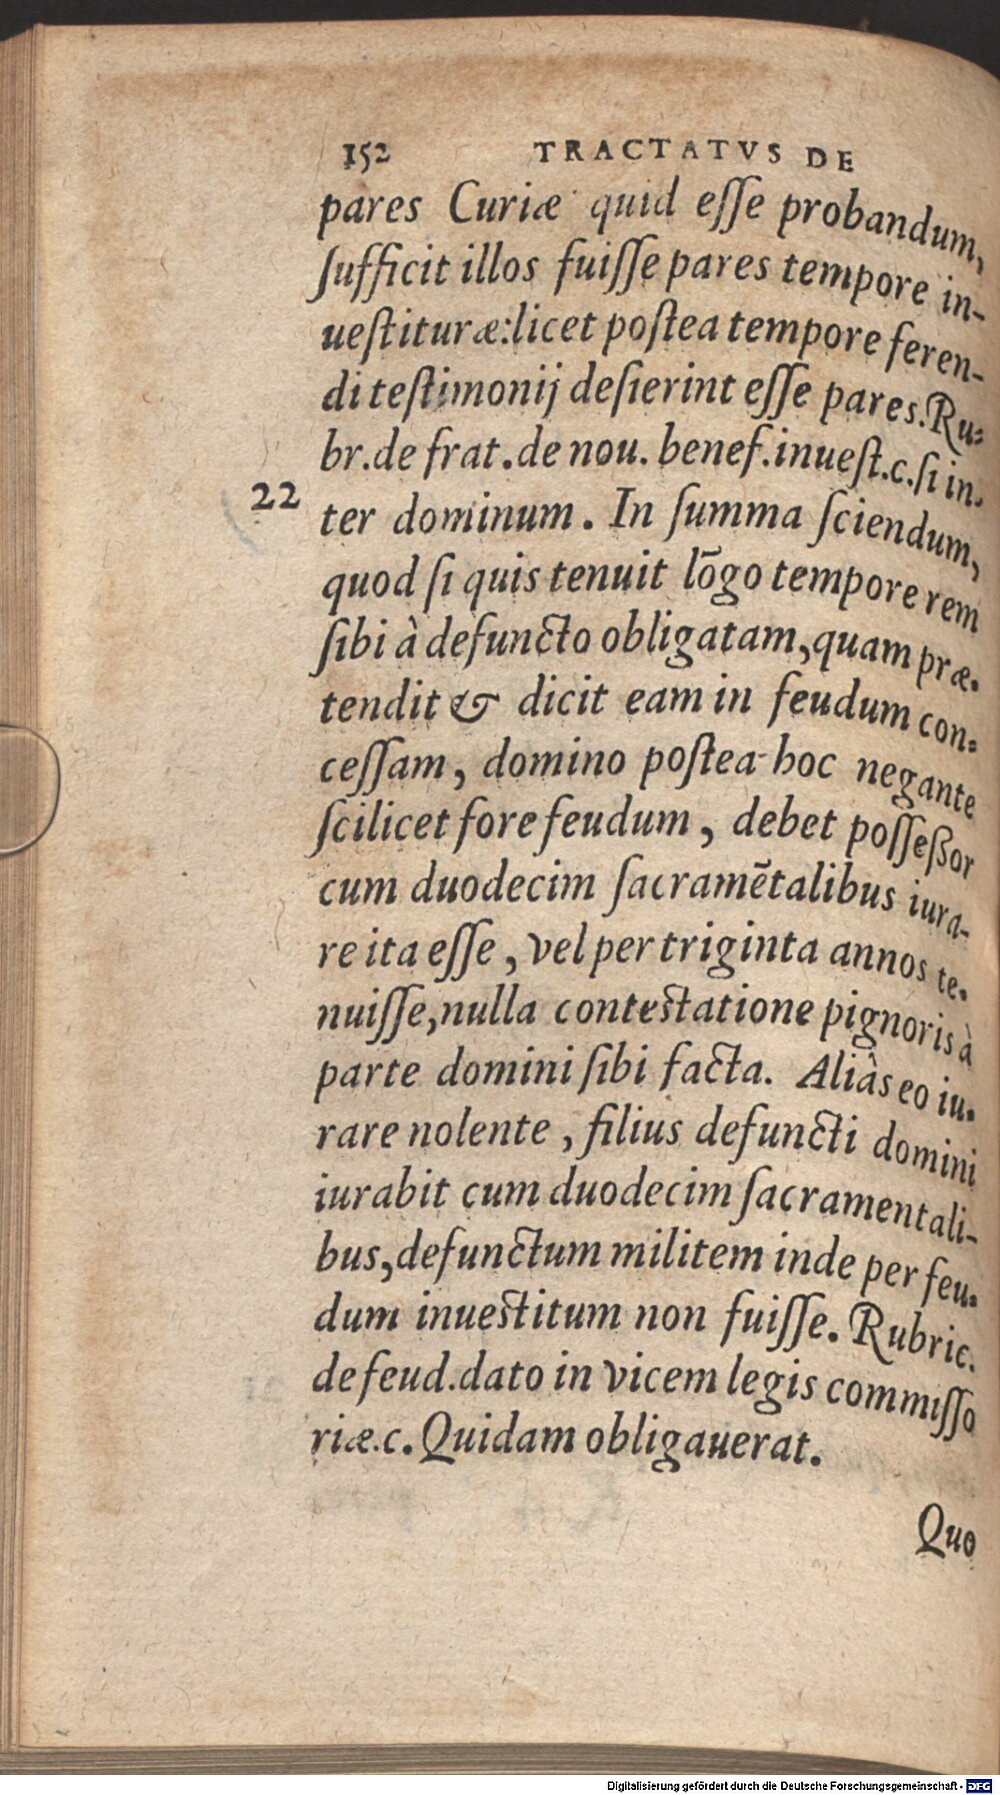 152 TRACTATVS DE
pares Curiæ quid eſſe probandum,
ſufficit illos fuiſſe pares tempore in-
ueſtituræ:licet poſtea tempore feren-
di teſtimonij deſierint eſſe pares.Ru-
br.de frat.de nou. benef.inueſt.c.ſi in-
22 ter dominum. In ſumma ſciendum,
quod ſi quis tenuit lōgo tempore rem
ſibi à defuncto obligatam,quam præ-
tendit & dicit eam in feudum con-
ceſſam, domino poſtea hoc negante
ſcilicet fore feudum, debet poſſeßor
cum duodecim ſacramētalibus iura-
re ita eſſe, vel per triginta annos te-
nuiſſe,nulla conteſtatione pignoris à
parte domini ſibi facta. Aliâs eo iu-
rare nolente, filius defuncti domini
iurabit cum duodecim ſacramentali-
bus,defunctum militem inde per feu-
dum inueſtitum non fuiſſe. Rubric.
de feud.dato in vicem legis commiſſo
riæ.c. Quidam obligauerat.
Quo
Digitalisierung gefördert durch die Deutsche Forschungsgemeinschaft - DFG